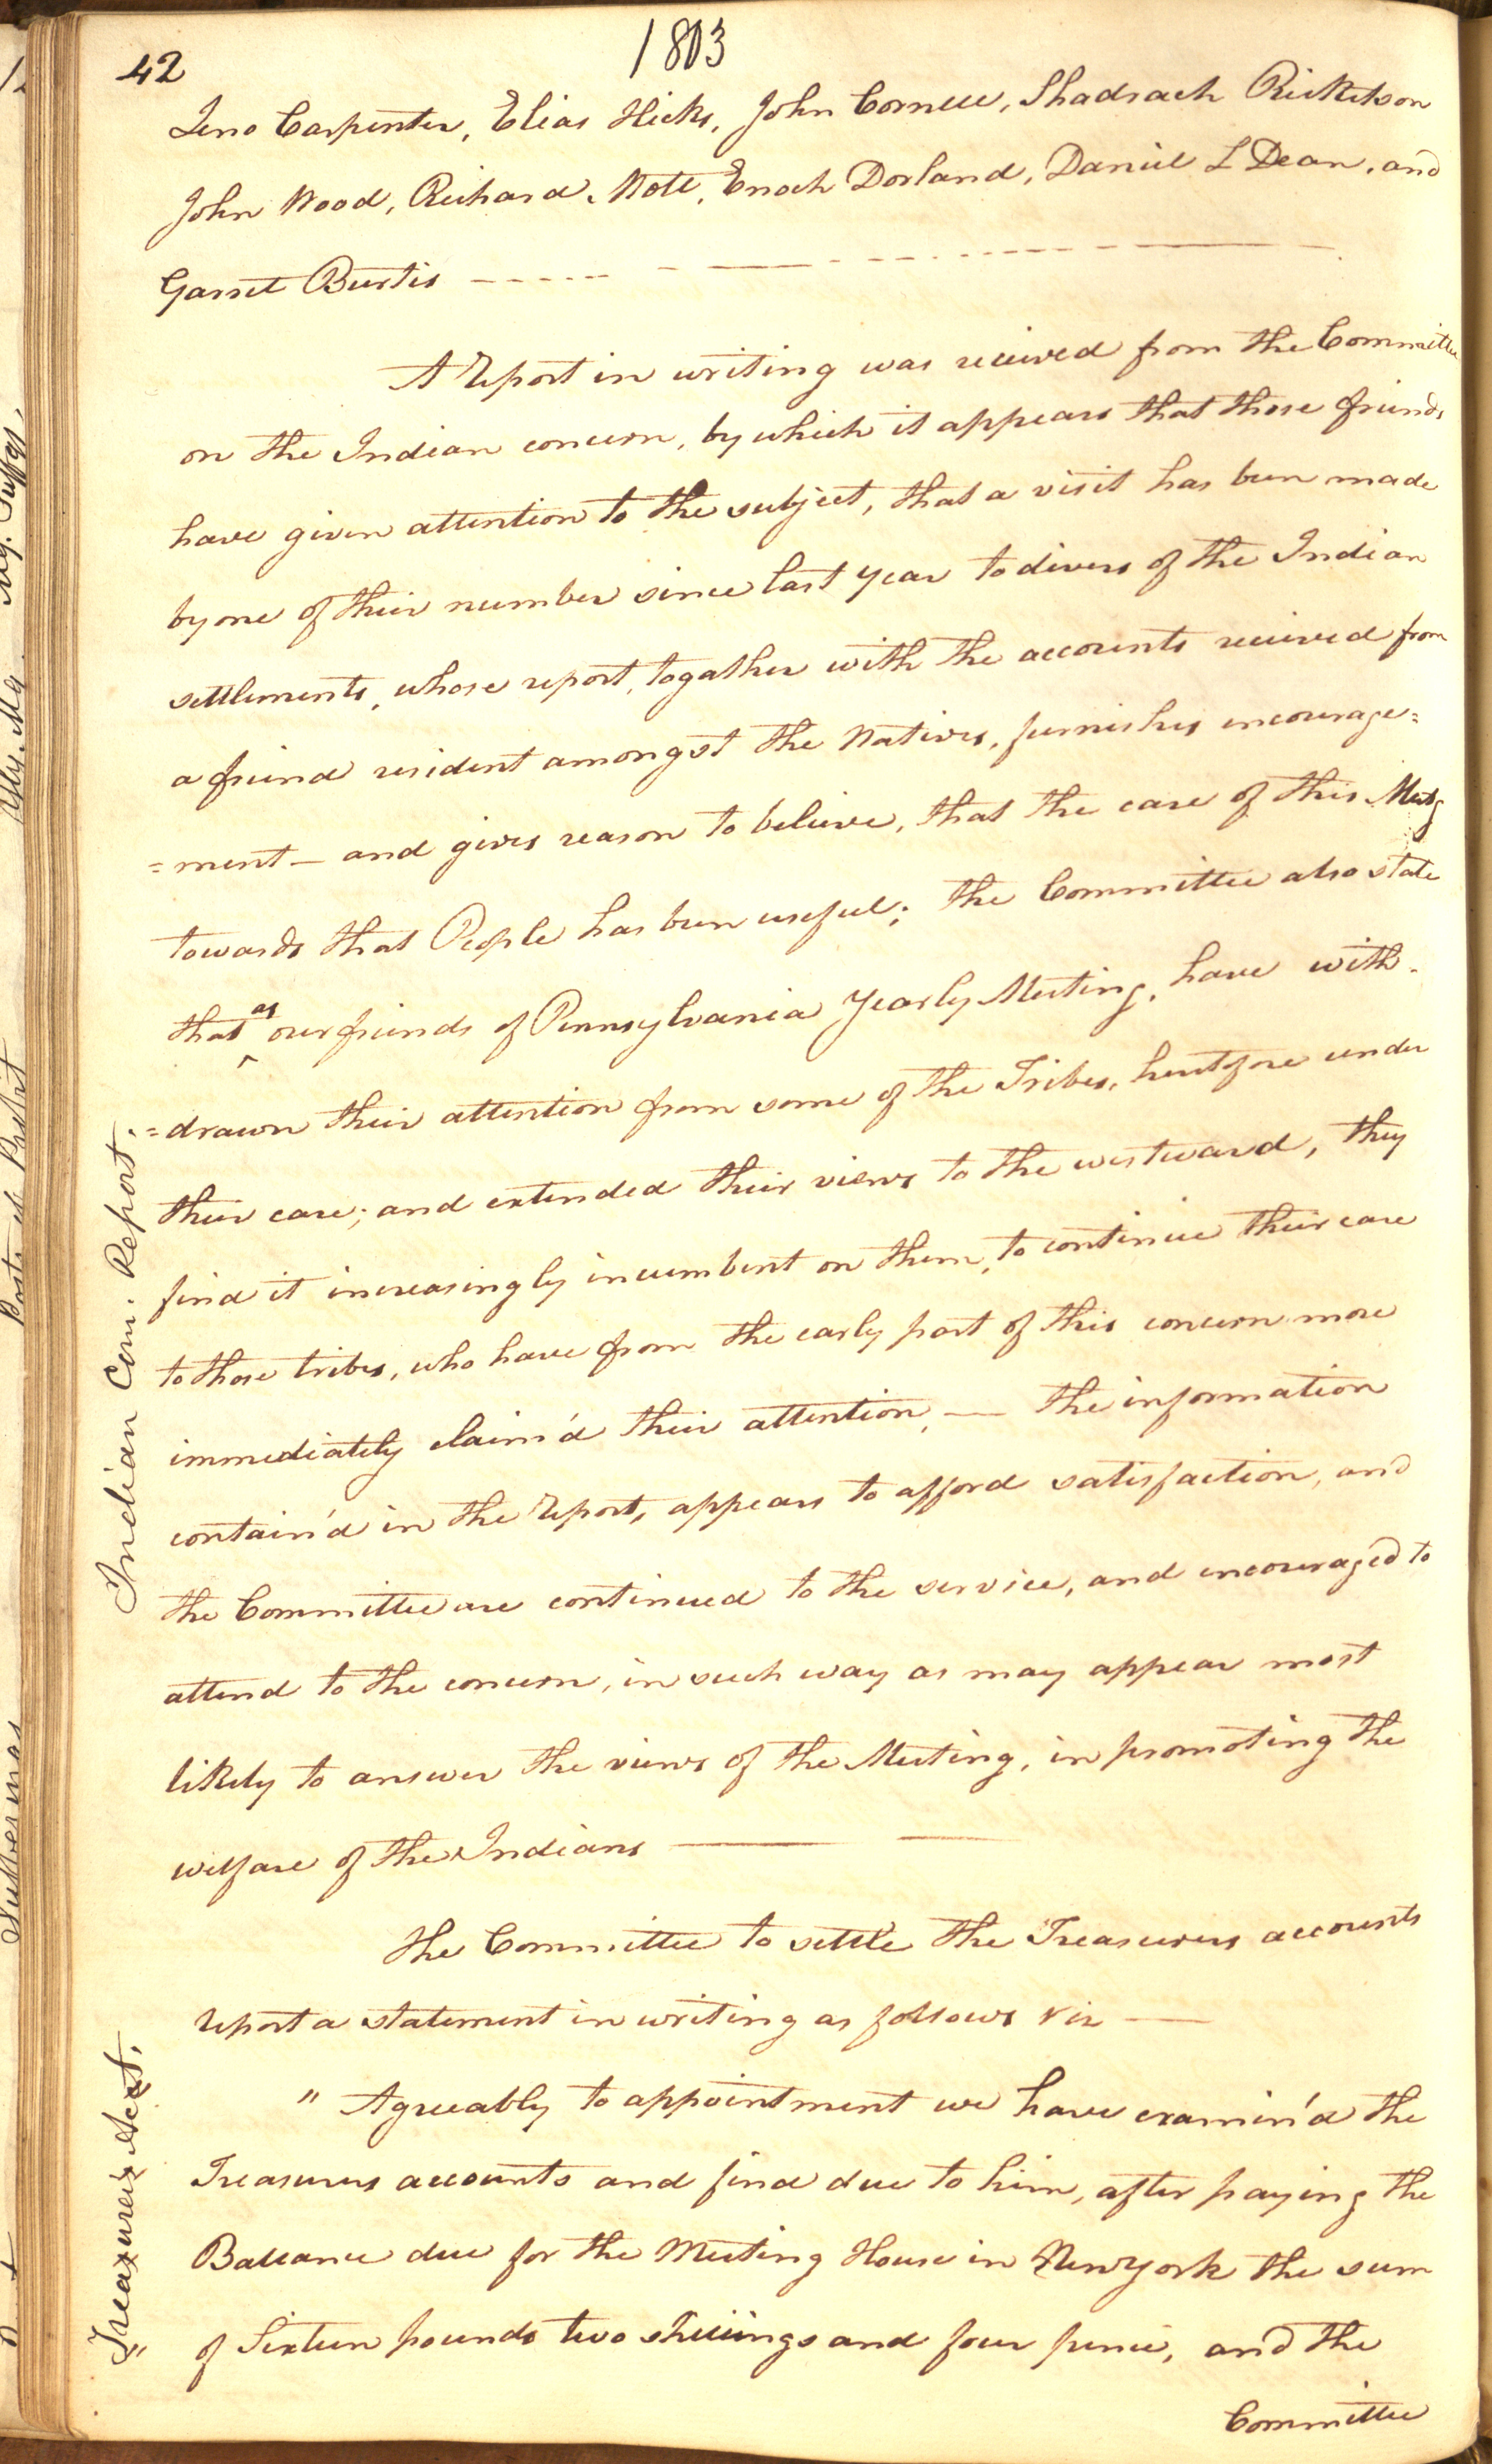 42
1803
Zeno Carpenter, Elias Hicks, John Cornell, Shadrach Ricketson
John Wood, Richard Mott, Enoch Dorland, Daniel L Dean, and
Garret Burtis
A report in writing was received from the Committee
on the Indian concern, by which it appears that those friends
have given attention to the subject, that a visit has been made
by one of their number since last year to divers of the Indian
settlements, whose report, togather with the accounts received from
a friend resident amongst the Natives, furnishes encourage=
=ment — and gives reason to believe, that the care of this Meetg
towards that People has been useful; the Committee also state
that as our friends of Pennsylvania Yearly Meeting, have with-
=drawn their attention from some of the Tribes, heretofore under
their care; and extended their views to the westward, they
find it increasingly incumbent on them, to continue their care
to those tribes, who have from the early part of this concern more
immediately claim'd their attention, — the information
contain'd in the report, appears to afford satisfaction, and
the Committee are continued to the service, and encouraged to
attend to the concern, in such way as may appear most
likely to answer the views of the Meeting, in promoting the
welfare of the Indians
the Committee to settle the Treasurers accounts
report a statement in writing as follows viz —
" Agreeably to appointment we have examin'd the
Treasurers accounts and find due to him, after paying the
Ballance due for the Meeting House in Newyork the sum
of Sixteen pounds two shillings and four pence, and the
Committee
Indian Com. Report.
Treasurer's Acct.